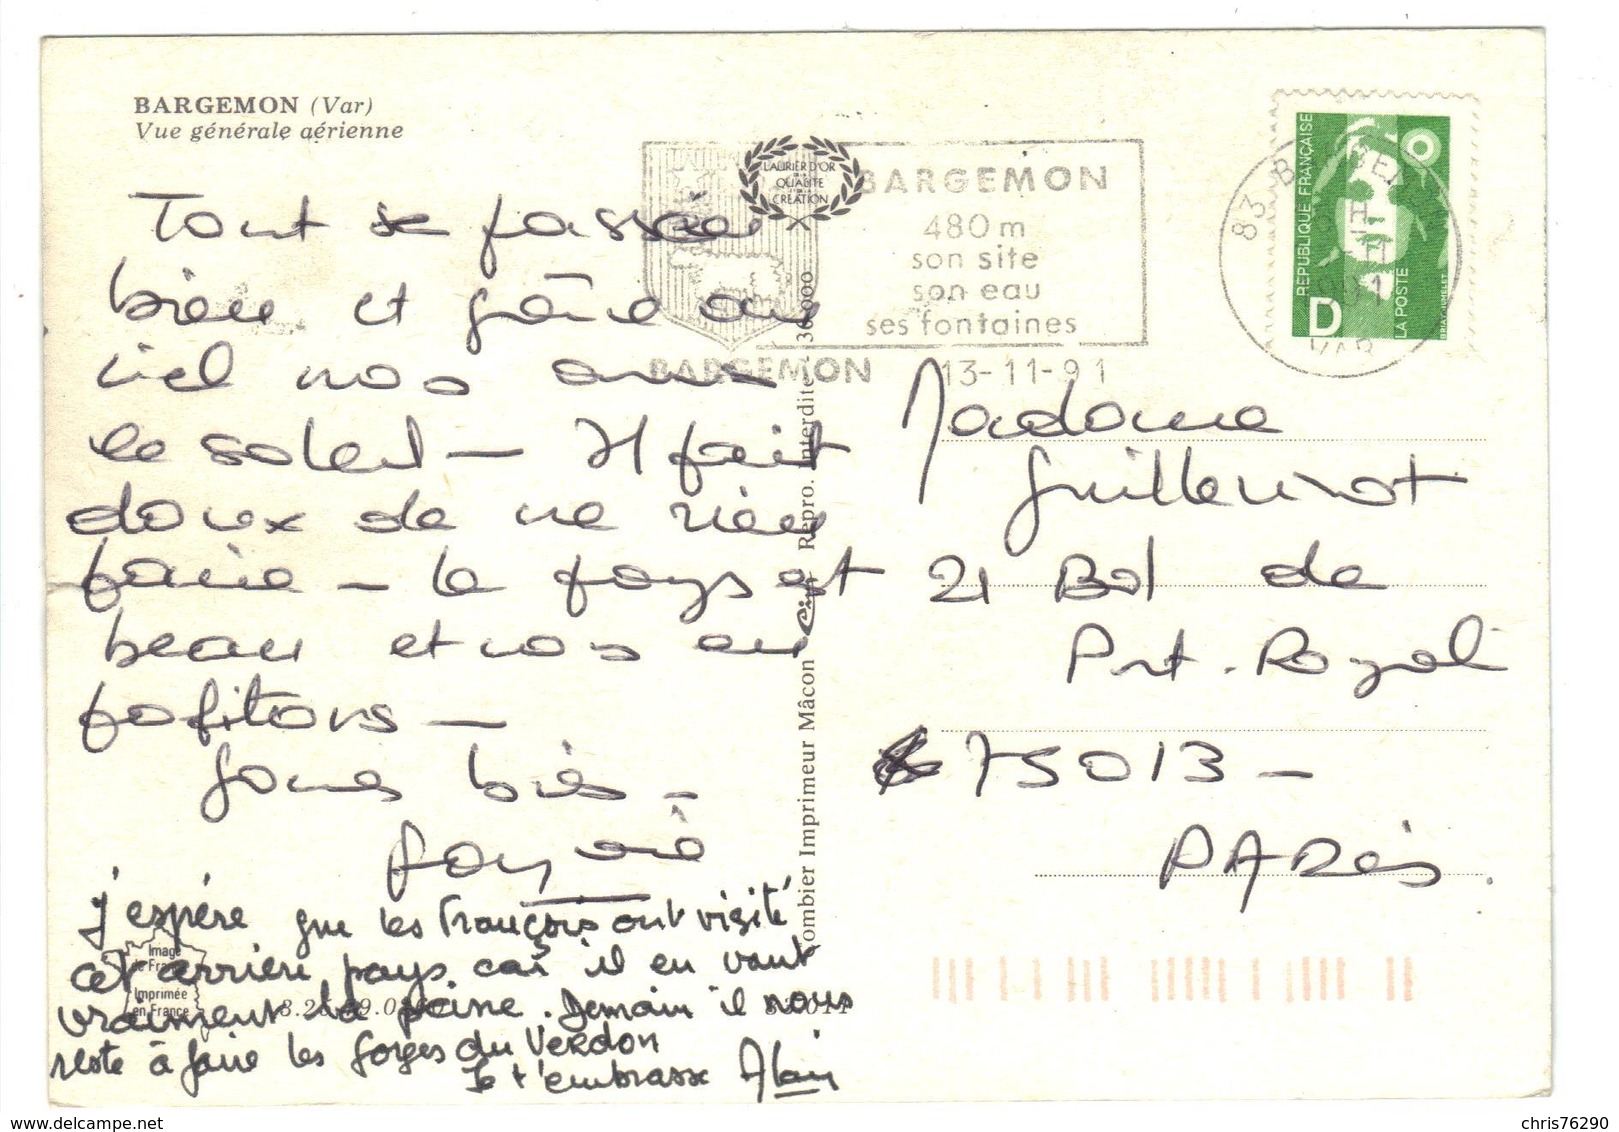 BARGEMON (Var)
Vue générale aérienne
LAURIER D'OR
QUALITE
CREATION
BARGEMON
480 m
son site
son eau
ses fontaines
BARGEMON 13-11-91
83 BARGEMON
VAR
REPUBLIQUE FRANÇAISE
D
LA POSTE
BRIAT JUMELET
Tout se passe
bien et grâce au
ciel nous avons
le soleil - Il fait
doux de ne rien
faire - le pays est
beau et nous en
profitons -
Grosses bises -
j'espère que les Français ont visité
cet arrière pays car il en vaut
vraiment la peine. Demain il nous
reste à faire les gorges du VERDON
Je t'embrasse Alain
Image
de France
Imprimée
en France
Combier Imprimeur Mâcon Cim Repro. Interdite
Madame
Guillerminot
21 Bd de
Port-Royal
75013 -
PARis.
chris76290